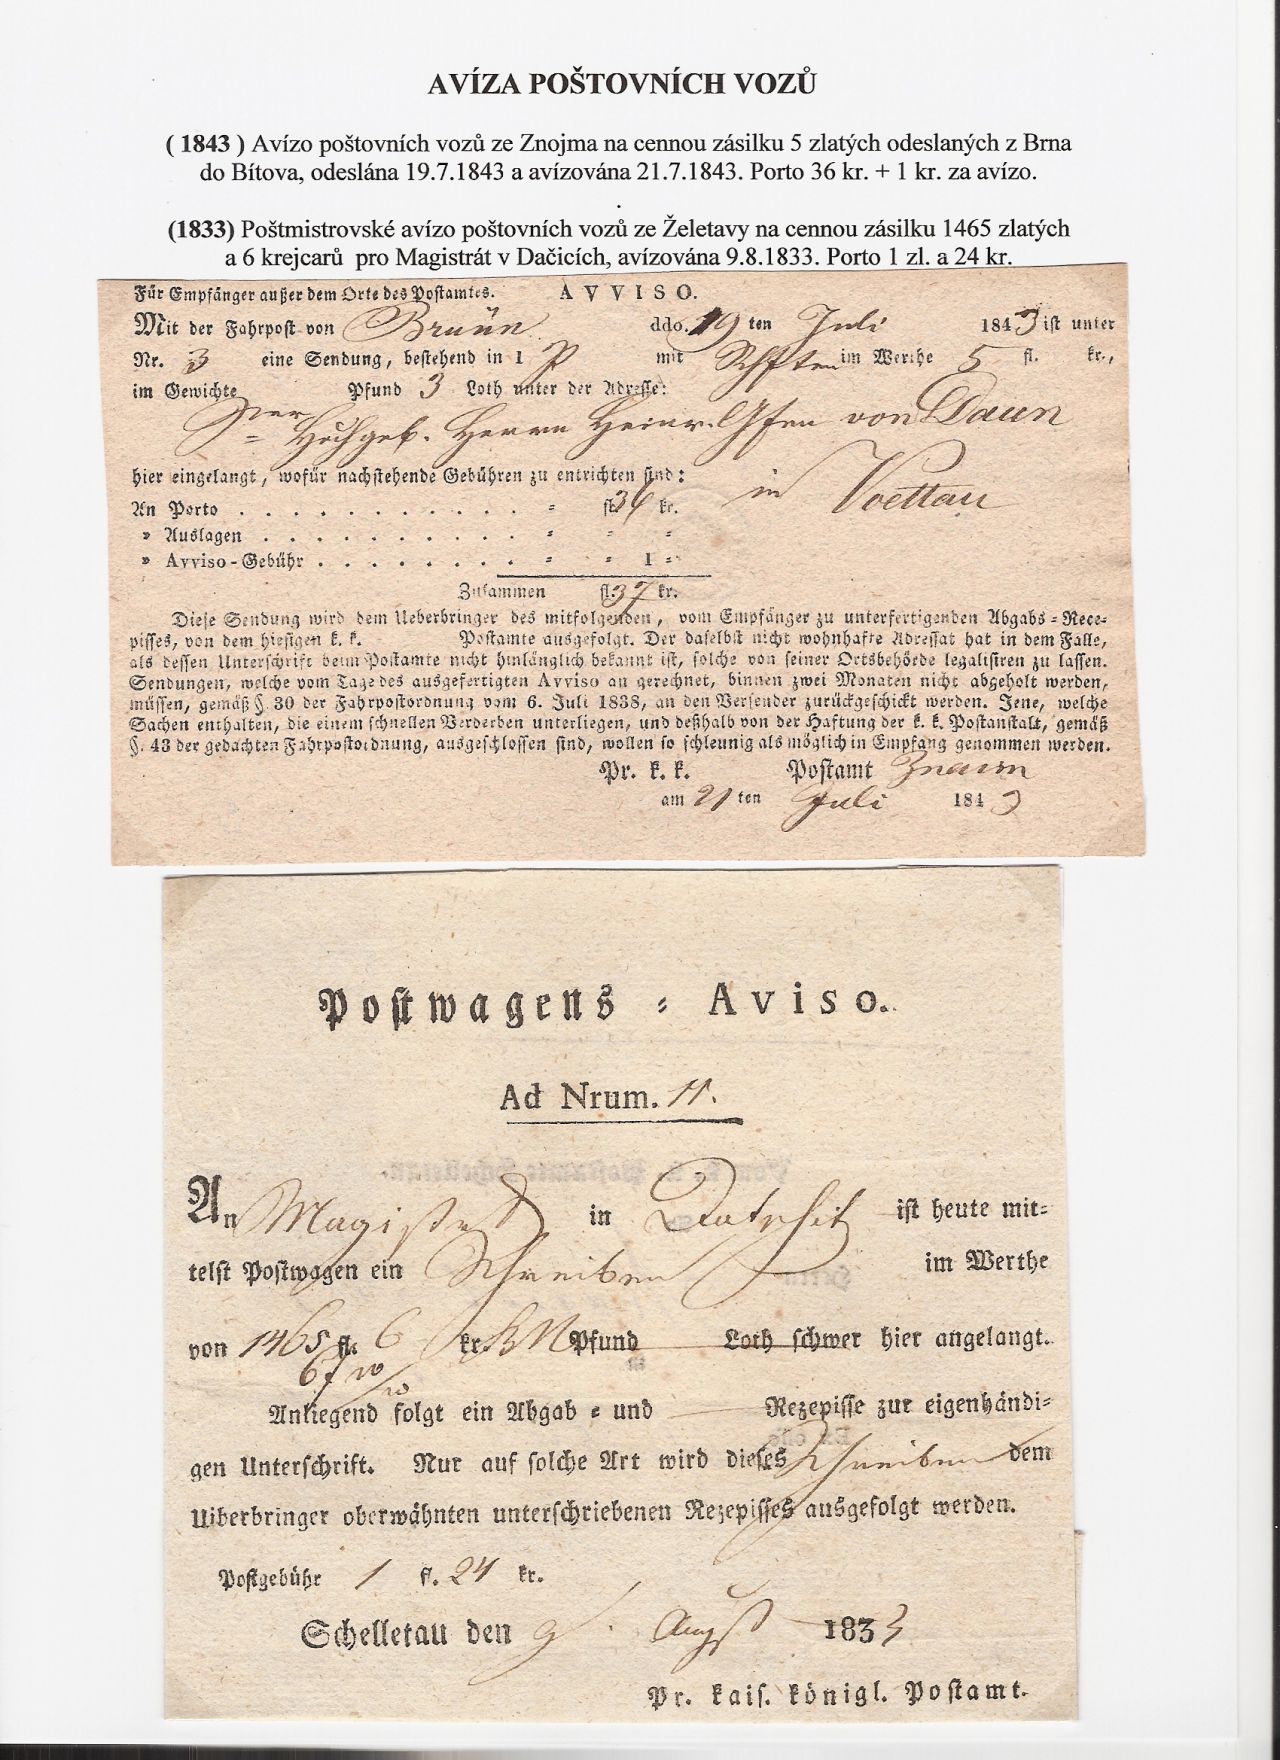 AVÍZA POŠTOVNÍCH VOZŮ
( 1843 ) Avízo poštovních vozů ze Znojma na cennou zásilku 5 zlatých odeslaných z Brna
do Bítova, odeslána 19.7.1843 a avízována 21.7.1843. Porto 36 kr. + 1 kr. za avízo.
(1833) Poštmistrovské avízo poštovních vozů ze Želetavy na cennou zásilku 1465 zlatých
a 6 krejcarů pro Magistrát v Dačicích, avízována 9.8.1833. Porto 1 zl. a 24 kr.
Für Empfänger außer dem Orte des Postamtes. AVVISO.
Mit der Fahrpost von Brünn ddo. 19 ten Juli 1843 ist unter
Nr. 3 eine Sendung, bestehend in 1 P mit Schften im Werthe 5 fl. kr.,
im Gewichte Pfund 3 Loth unter der Adresse:
Hochgeb. Herrn Heinr. Gfen von Daun
hier eingelangt, wofür nachstehende Gebühren zu entrichten sind: in Voettau
An Porto . . . . . . . . . . . = fl. 36 kr.
» Auslagen . . . . . . . . . . = = =
» Avviso-Gebühr . . . . . . . . = = 1 =
Zusammen fl. 37 kr.
Diese Sendung wird dem Ueberbringer des mitfolgenden, vom Empfänger zu unterfertigenden Abgabs=Rece=
pisses, von dem hiesigen k. k. Postamte ausgefolgt. Der daselbst nicht wohnhafte Adressat hat in dem Falle,
als dessen Unterschrift beim Postamte nicht hinlänglich bekannt ist, solche von seiner Ortsbehörde legalisiren zu lassen.
Sendungen, welche vom Tage des ausgefertigten Avviso an gerechnet, binnen zwei Monaten nicht abgeholt werden,
müssen, gemäß §. 30 der Fahrpostordnung vom 6. Juli 1838, an den Versender zurückgeschickt werden. Jene, welche
Sachen enthalten, die einem schnellen Verderben unterliegen, und deßhalb von der Haftung der k. k. Postanstalt, gemäß
§. 43 der gedachten Fahrpostordnung, ausgeschlossen sind, wollen so schleunig als möglich in Empfang genommen werden.
Pr. k. k. Postamt Znaim
am 21 ten Juli 1843
Postwagens = Aviso.
Ad Nrum. 11.
An Magistrat in Datschitz ist heute mit=
telst Postwagen ein Schreiben im Werthe
von 1465 fl. 6 kr. Pfund Loth schwer hier angelangt.
Anliegend folgt ein Abgab = und Rezepisse zur eigenhändi=
gen Unterschrift. Nur auf solche Art wird dieses Schreiben dem
Uiberbringer oberwähnten unterschriebenen Rezepisses ausgefolgt werden.
Postgebühr 1 fl. 24 kr.
Schelletau den 9 August 1833
Pr. kais. königl. Postamt.